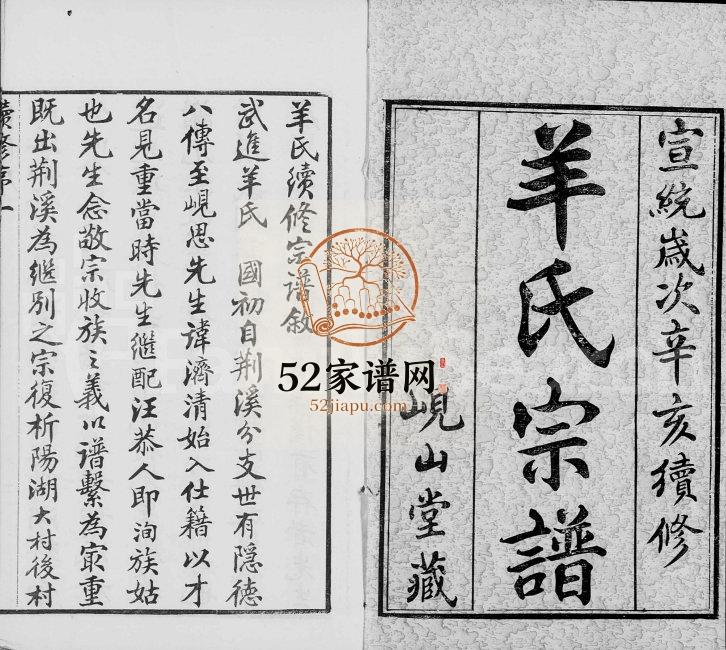 宣統歲次辛亥續修
羊氏宗譜
峴山堂藏
羊氏續修宗譜敘
武進羊氏　國初自荆溪分支世有隱德
八傳至峴思先生諱濟清始入仕籍以才
名見重當時先生繼配汪恭人即洵族姑
也先生念敬宗收族之義以譜繫為冣重
既出荆溪為繼別之宗復析陽湖大村後村
續修序一
52家谱网
52jiapu.com